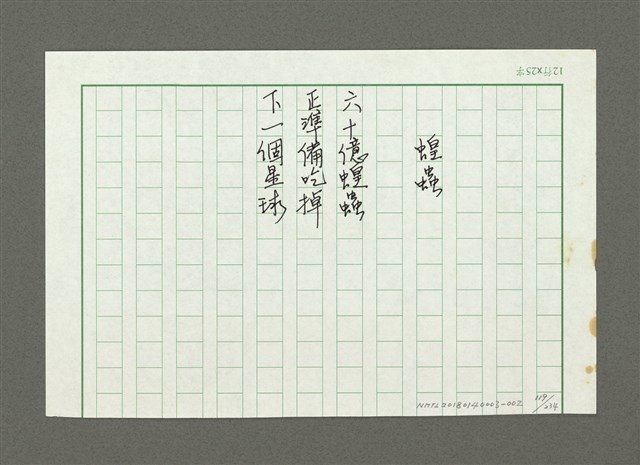 12行X25字
蝗蟲
六十億蝗蟲
正準備吃掉
下一個星球
NMTL20180140003-002
119/234